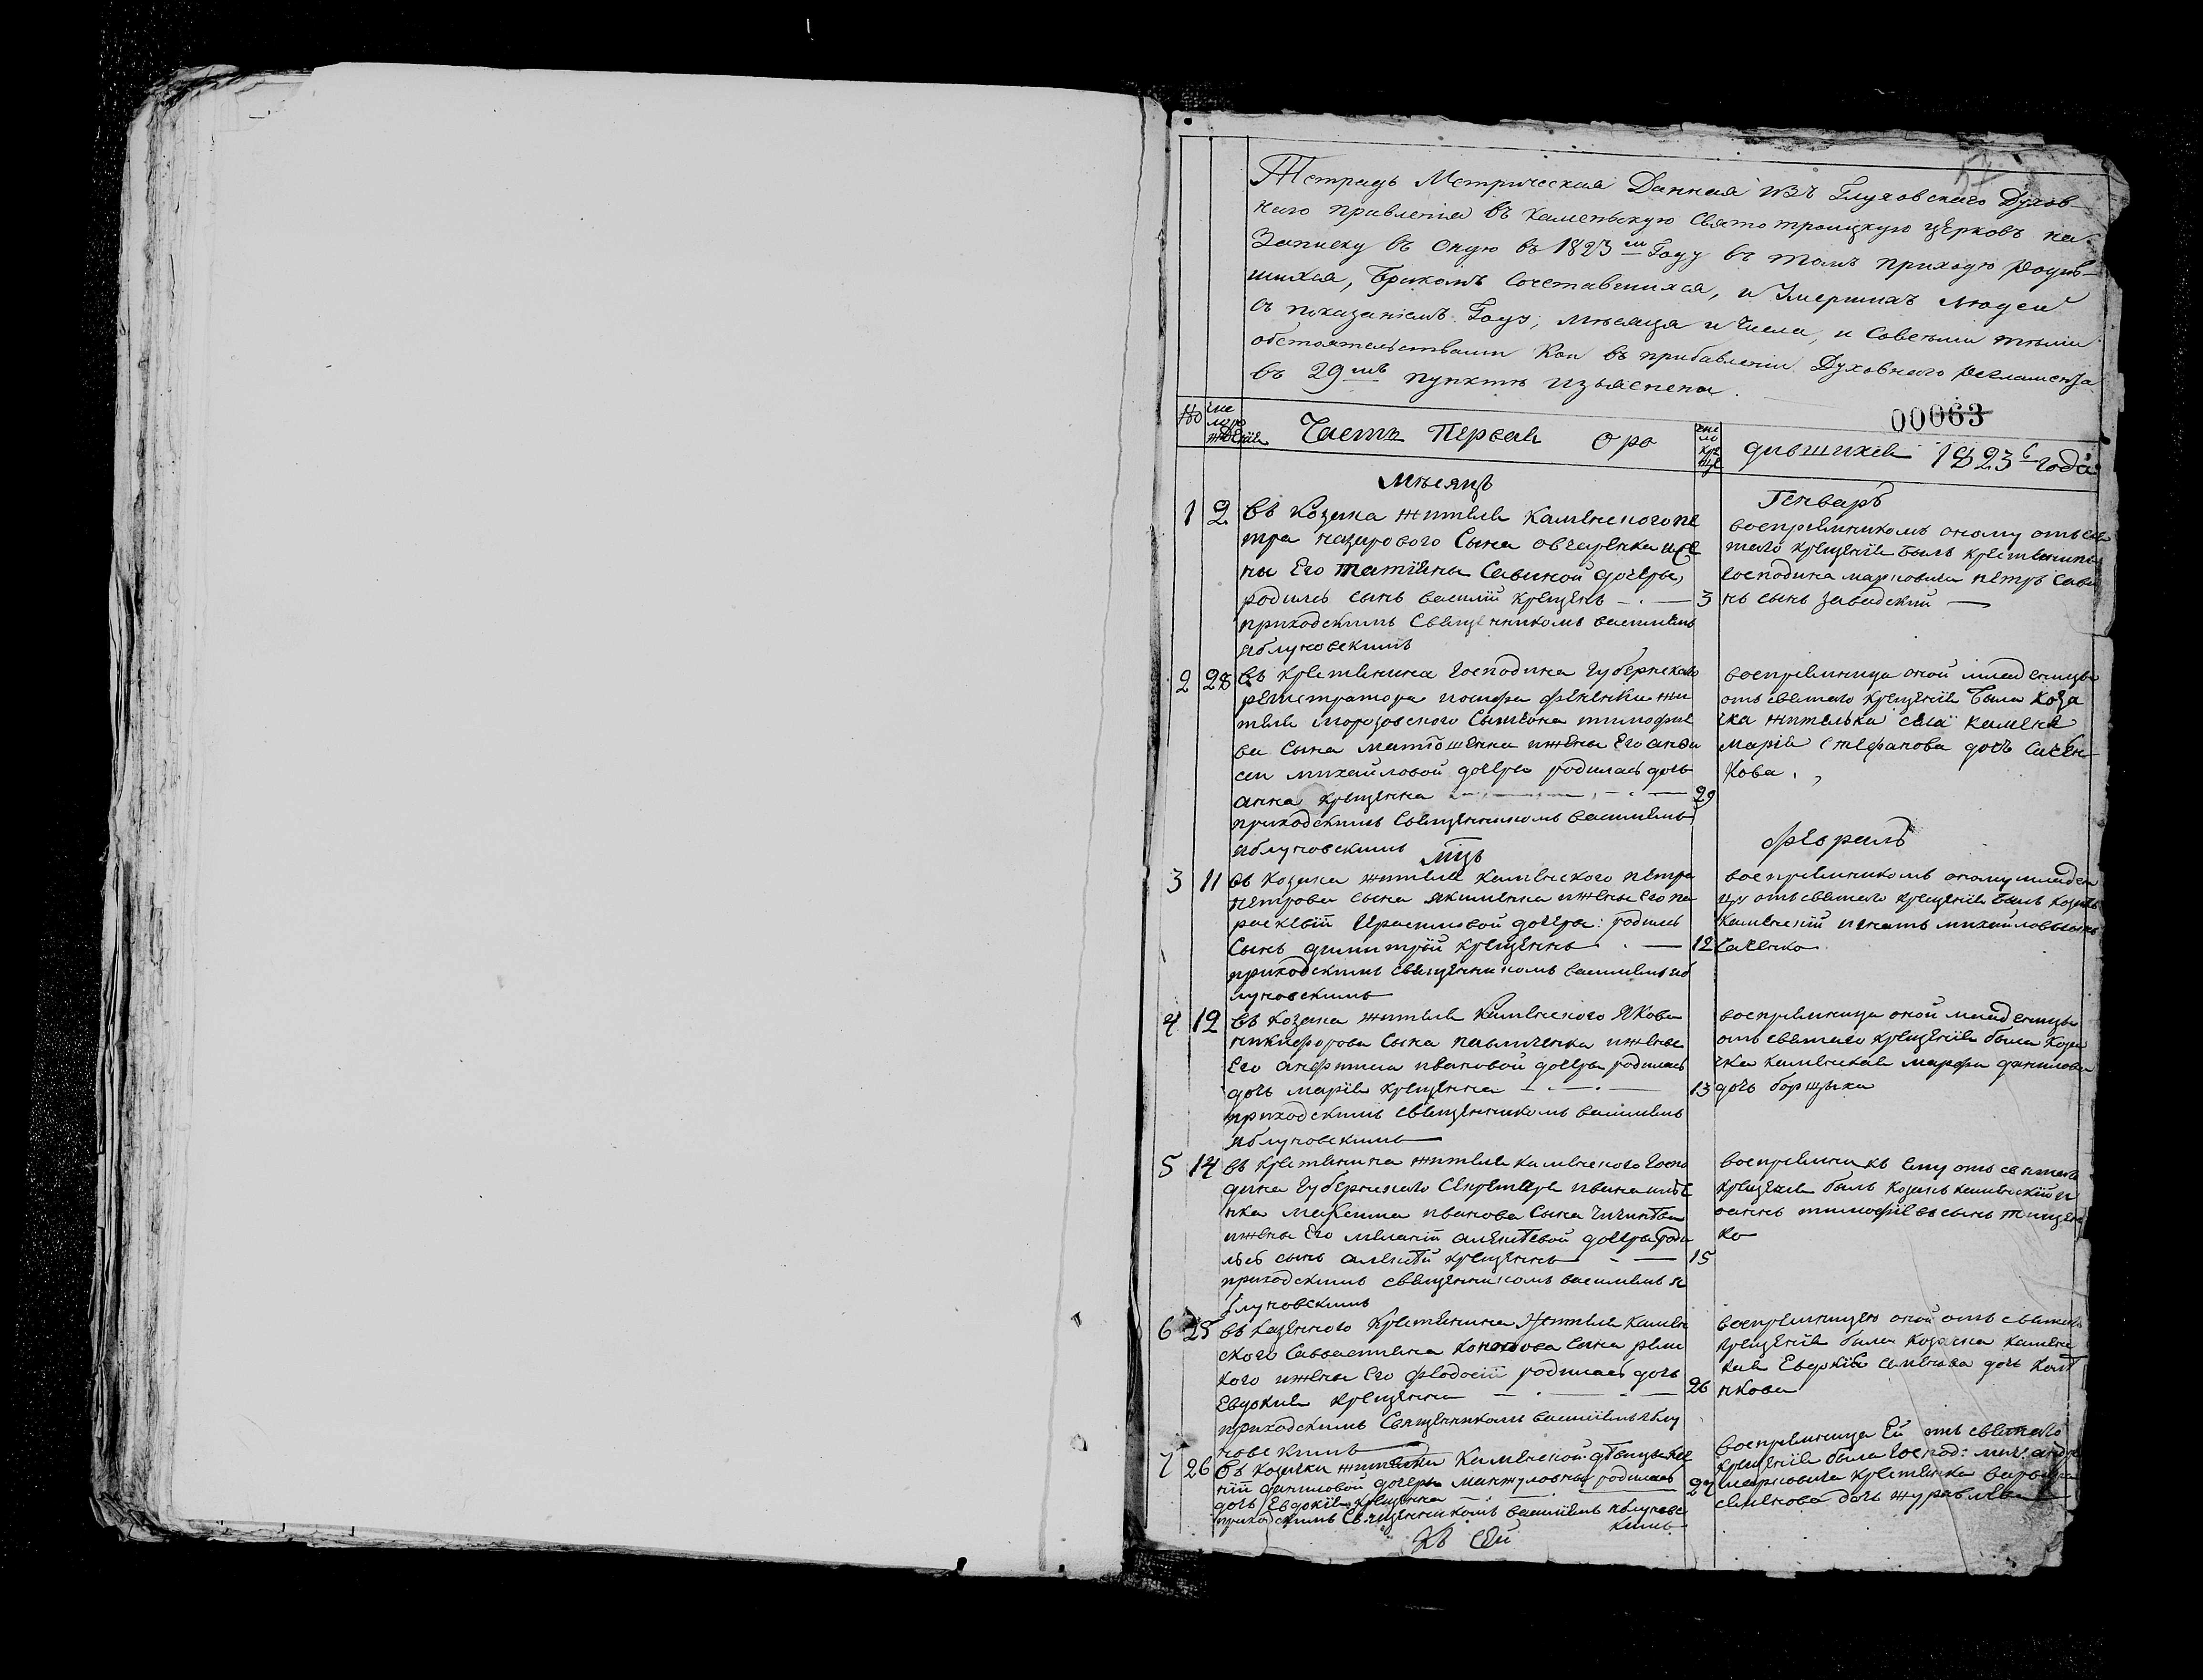 57
Тетрадь Метрическая Данная изъ Глуховскаго Духов
наго правленія въ каменскую Свято троицкую церковь на
Записку въ оную въ 1823м Году въ томъ приходѣ родив
шихся, Бракомъ Сочетавшихся, и Умершихъ людей
съ показаніемъ Году, мѣсяца и Числа, и Совсѣми тѣми
обстоятельствами Кои въ прибавленіи Духовнаго регламента
въ 29мъ пунктѣ изъяснены.
00063
№ чи сло ро жденія Часть Первая о ро чи сло кре ще дившихся 1823 года
Мѣсяцъ Генварь
1 2 въ Козака жителя Каменского пе
тра назарового Сына овчаренка и же
ны Его Татіяны Савиной дочеры
родился сынъ василій крещенъ 3
приходскимъ Священникомъ василіемъ
яблуновскимъ
воспріемникомъ оному отъ свя
таго крещенія былъ крестьянинъ
господина марковича петръ Сави
нъ сынъ завадскій
2 28 въ крестьянина господина губернскаго
регистратора іосифа фененка жи
теля морозовского Сымеона тимофее
ва Сына матюшенка и жены Его
михайловой дочеры родилась дочь
анна крещенна 29
приходскимъ Священникомъ василіемъ
яблуновскимъ
воспріемница оной младеницы
отъ святаго крещенія была Коза
чка жителька села каменя
Марія Стефанова дочь Саен
кова.
мцъ февраль
3 11 въ козака жителя каменского петра
петрова сына якименка и жены Его па
раскевіи Герасимовой дочеры: родился
Сынъ димитрій крещеннъ 12
приходскимъ священникомъ василіемъ яб
луновскимъ
воспріемникомъ оному младен
цу отъ святаго крещенія былъ козакъ
каменскій игнатъ михайловъ сынъ
Саенко
4 12 въ козака жителя Каменского Якова
никифорова Сына и жены
Его ивановой дочеры родилась
дочь марія крещенна 13
приходскимъ священникомъ василіемъ
яблуновскимъ
воспріемница оной младеницы
отъ святаго крещенія была коза
чка каменская марфа данилова
дочь борщика
5 14 въ крестьянина жителя каменского госпо
дина губернскаго Секретаря ивана
Максима иванова Сына
и жены Его меланіи алексѣевой дочеры роди
лся сынъ алексѣй крещеннъ 15
приходскимъ священникомъ василіемъ я
блуновскимъ
воспріемникъ Ему отъ святаго
крещенія былъ козакъ каменскій и
оаннъ тимофѣевъ сынъ тищен
ко
6 25 въ казенного крестьянина Жителя камен
ского Савастіяна Кононова сына
и жены Его феодосіи родилась дочь
Евдокія крещенна 26
приходскимъ Священникомъ василіемъ яблу
новскимъ
воспріемницею оной отъ святаго
крещенія была козачка каменс
кая Евдокія семенова дочь
7 26 въ козачки жительки Каменской дѣвицы
даниловой дочеры родилась
дочь Евдокія крещенна 27
приходскимъ Священникомъ василіемъ яблуновс
кимъ
воспріемница Ей отъ святаго
крещенія была господ:
марковича крестьянка варвара
семенова дочь журавлева
Къ Сей